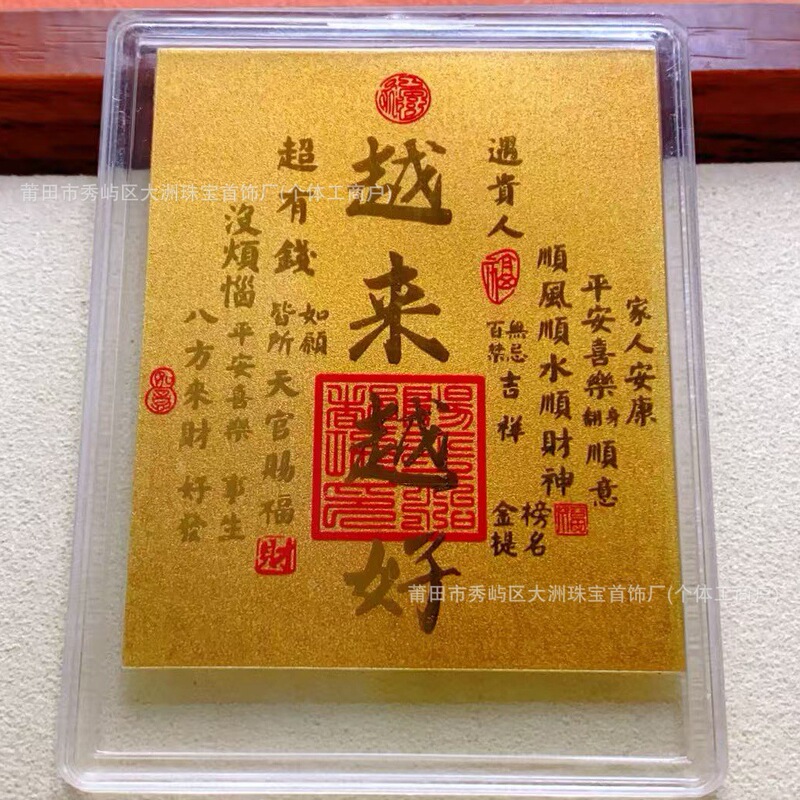 越来越好
家人安康
平安喜樂翻身順意
順風順水順財神
遇貴人
百無禁忌吉祥
金榜提名
超有錢
皆所如願
天官賜福
沒煩惱
平安喜樂
八方來財
福
財
莆田市秀屿区大洲珠宝首饰厂(个体工商户)
莆田市秀屿区大洲珠宝首饰厂(个体工商户)